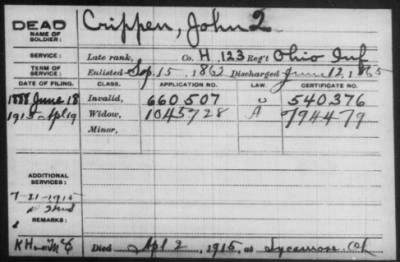 DEAD Crippen, John Q.
NAME OF
SOLDIER:
SERVICE: Late rank, Co. H, 123 Reg't Ohio Inf
TERM OF
SERVICE: Enlisted Sep. 15, 1862 Discharged June 12, 1865
DATE OF FILING. CLASS. APPLICATION NO. LAW. CERTIFICATE NO.
1888 June 18 Invalid, 660,507 540,376
1915 Apl 19 Widow, 1045728 A 794479
Minor,
ADDITIONAL
SERVICES:
7-21-1915
REMARKS:
Died Apl 2, 1915, at Sycamore, Oh